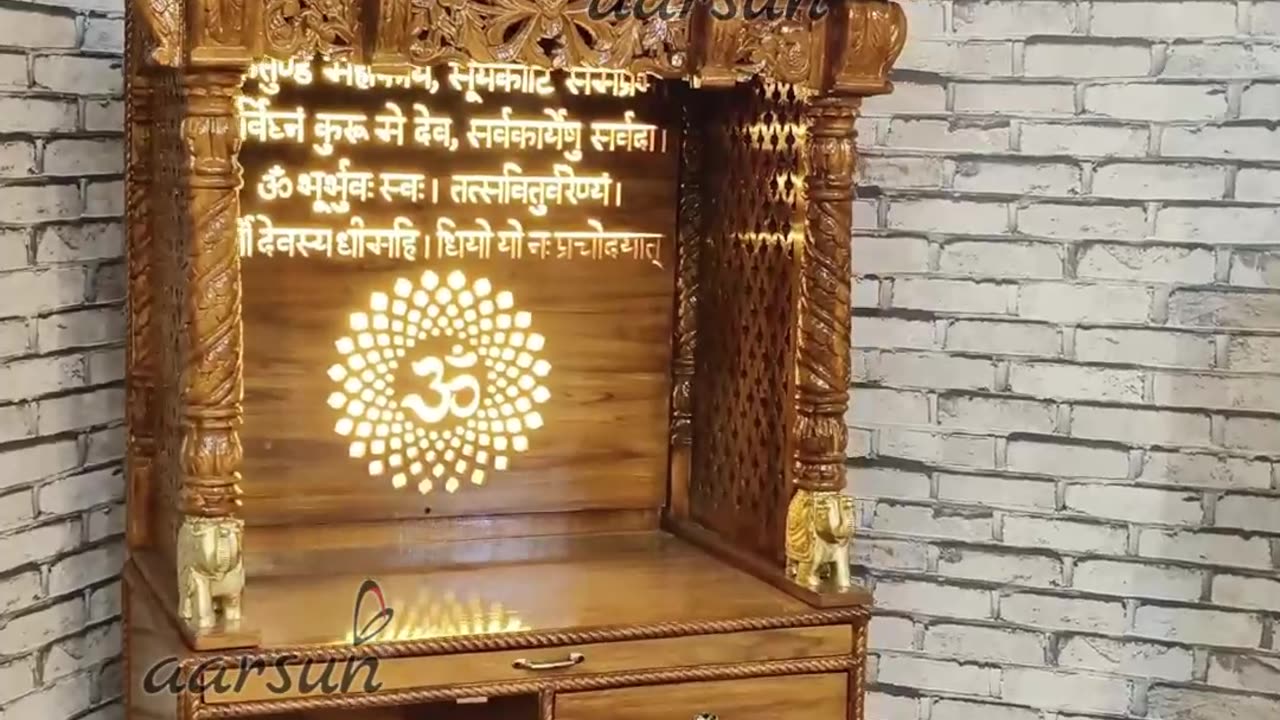 aarsun
महाकाय, सूर्यकोटि समप्र
कुरू मे देव, सर्वकार्येणु सर्वदा।
ॐ भूर्भुवः स्वः। तत्सवितुर्वरेण्यं।
देवस्य धीमहि। धियो यो नः प्रचोदयात्
ॐ
aarsun